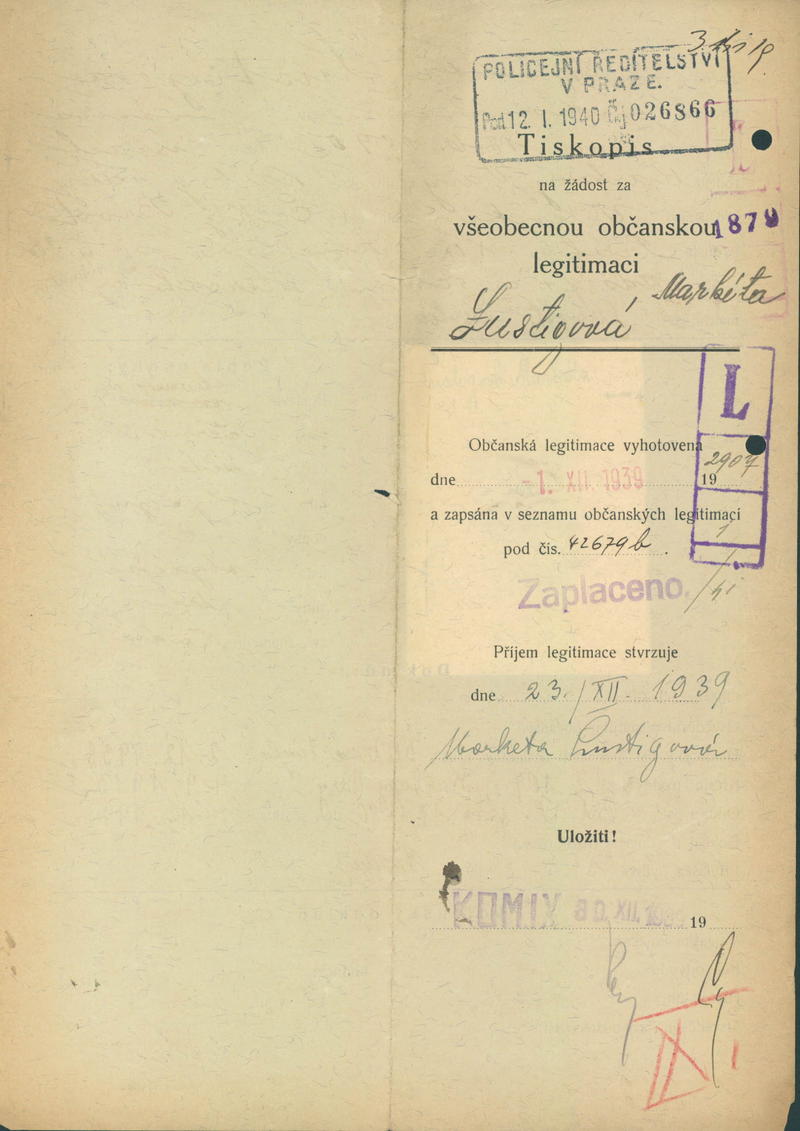 POLICEJNÍ ŘEDITELSTVÍ
V PRAZE.
12. I. 1940 Čj 026866
Tiskopis
na žádost za
všeobecnou občanskou 1879
legitimaci
Lustigová, Markéta
L
Občanská legitimace vyhotovena
2907
dne -1. XII. 1939 19
a zapsána v seznamu občanských legitimací
1
pod čís. 42679b.
Zaplaceno.
Příjem legitimace stvrzuje
dne 23./XII. 1939
Marketa Lustigová
Uložiti!
KOMIX
19